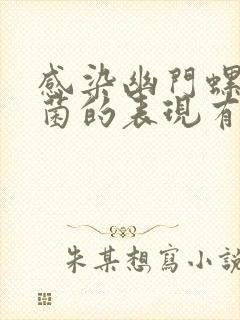 感染幽門螺
菌的表現有
朱某想寫小說